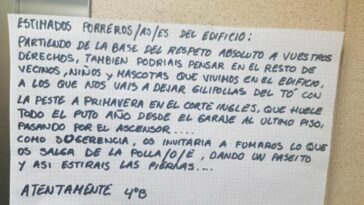 ESTIMADOS PORREROS/AS/ES DEL EDIFICIO:
PARTIENDO DE LA BASE DEL RESPETO ABSOLUTO A VUESTROS
DERECHOS, TAMBIEN PODRIAIS PENSAR EN EL RESTO DE
VECINOS, NIÑOS Y MASCOTAS QUE VIVIMOS EN EL EDIFICIO,
A LOS QUE NOS VAIS A DEJAR GILIPOLLAS DEL TO' CON
LA PESTE A PRIMAVERA EN EL CORTE INGLES, QUE HUELE
TODO EL PUTO AÑO DESDE EL GARAJE AL ULTIMO PISO,
PASANDO POR EL ASCENSOR....
COMO SUGERENCIA, OS INVITARIA A FUMAROS LO QUE
OS SALGA DE LA POLLA/O/E, DANDO UN PASEITO
Y ASI ESTIRAIS LAS PIERNAS....
ATENTAMENTE 4ºB